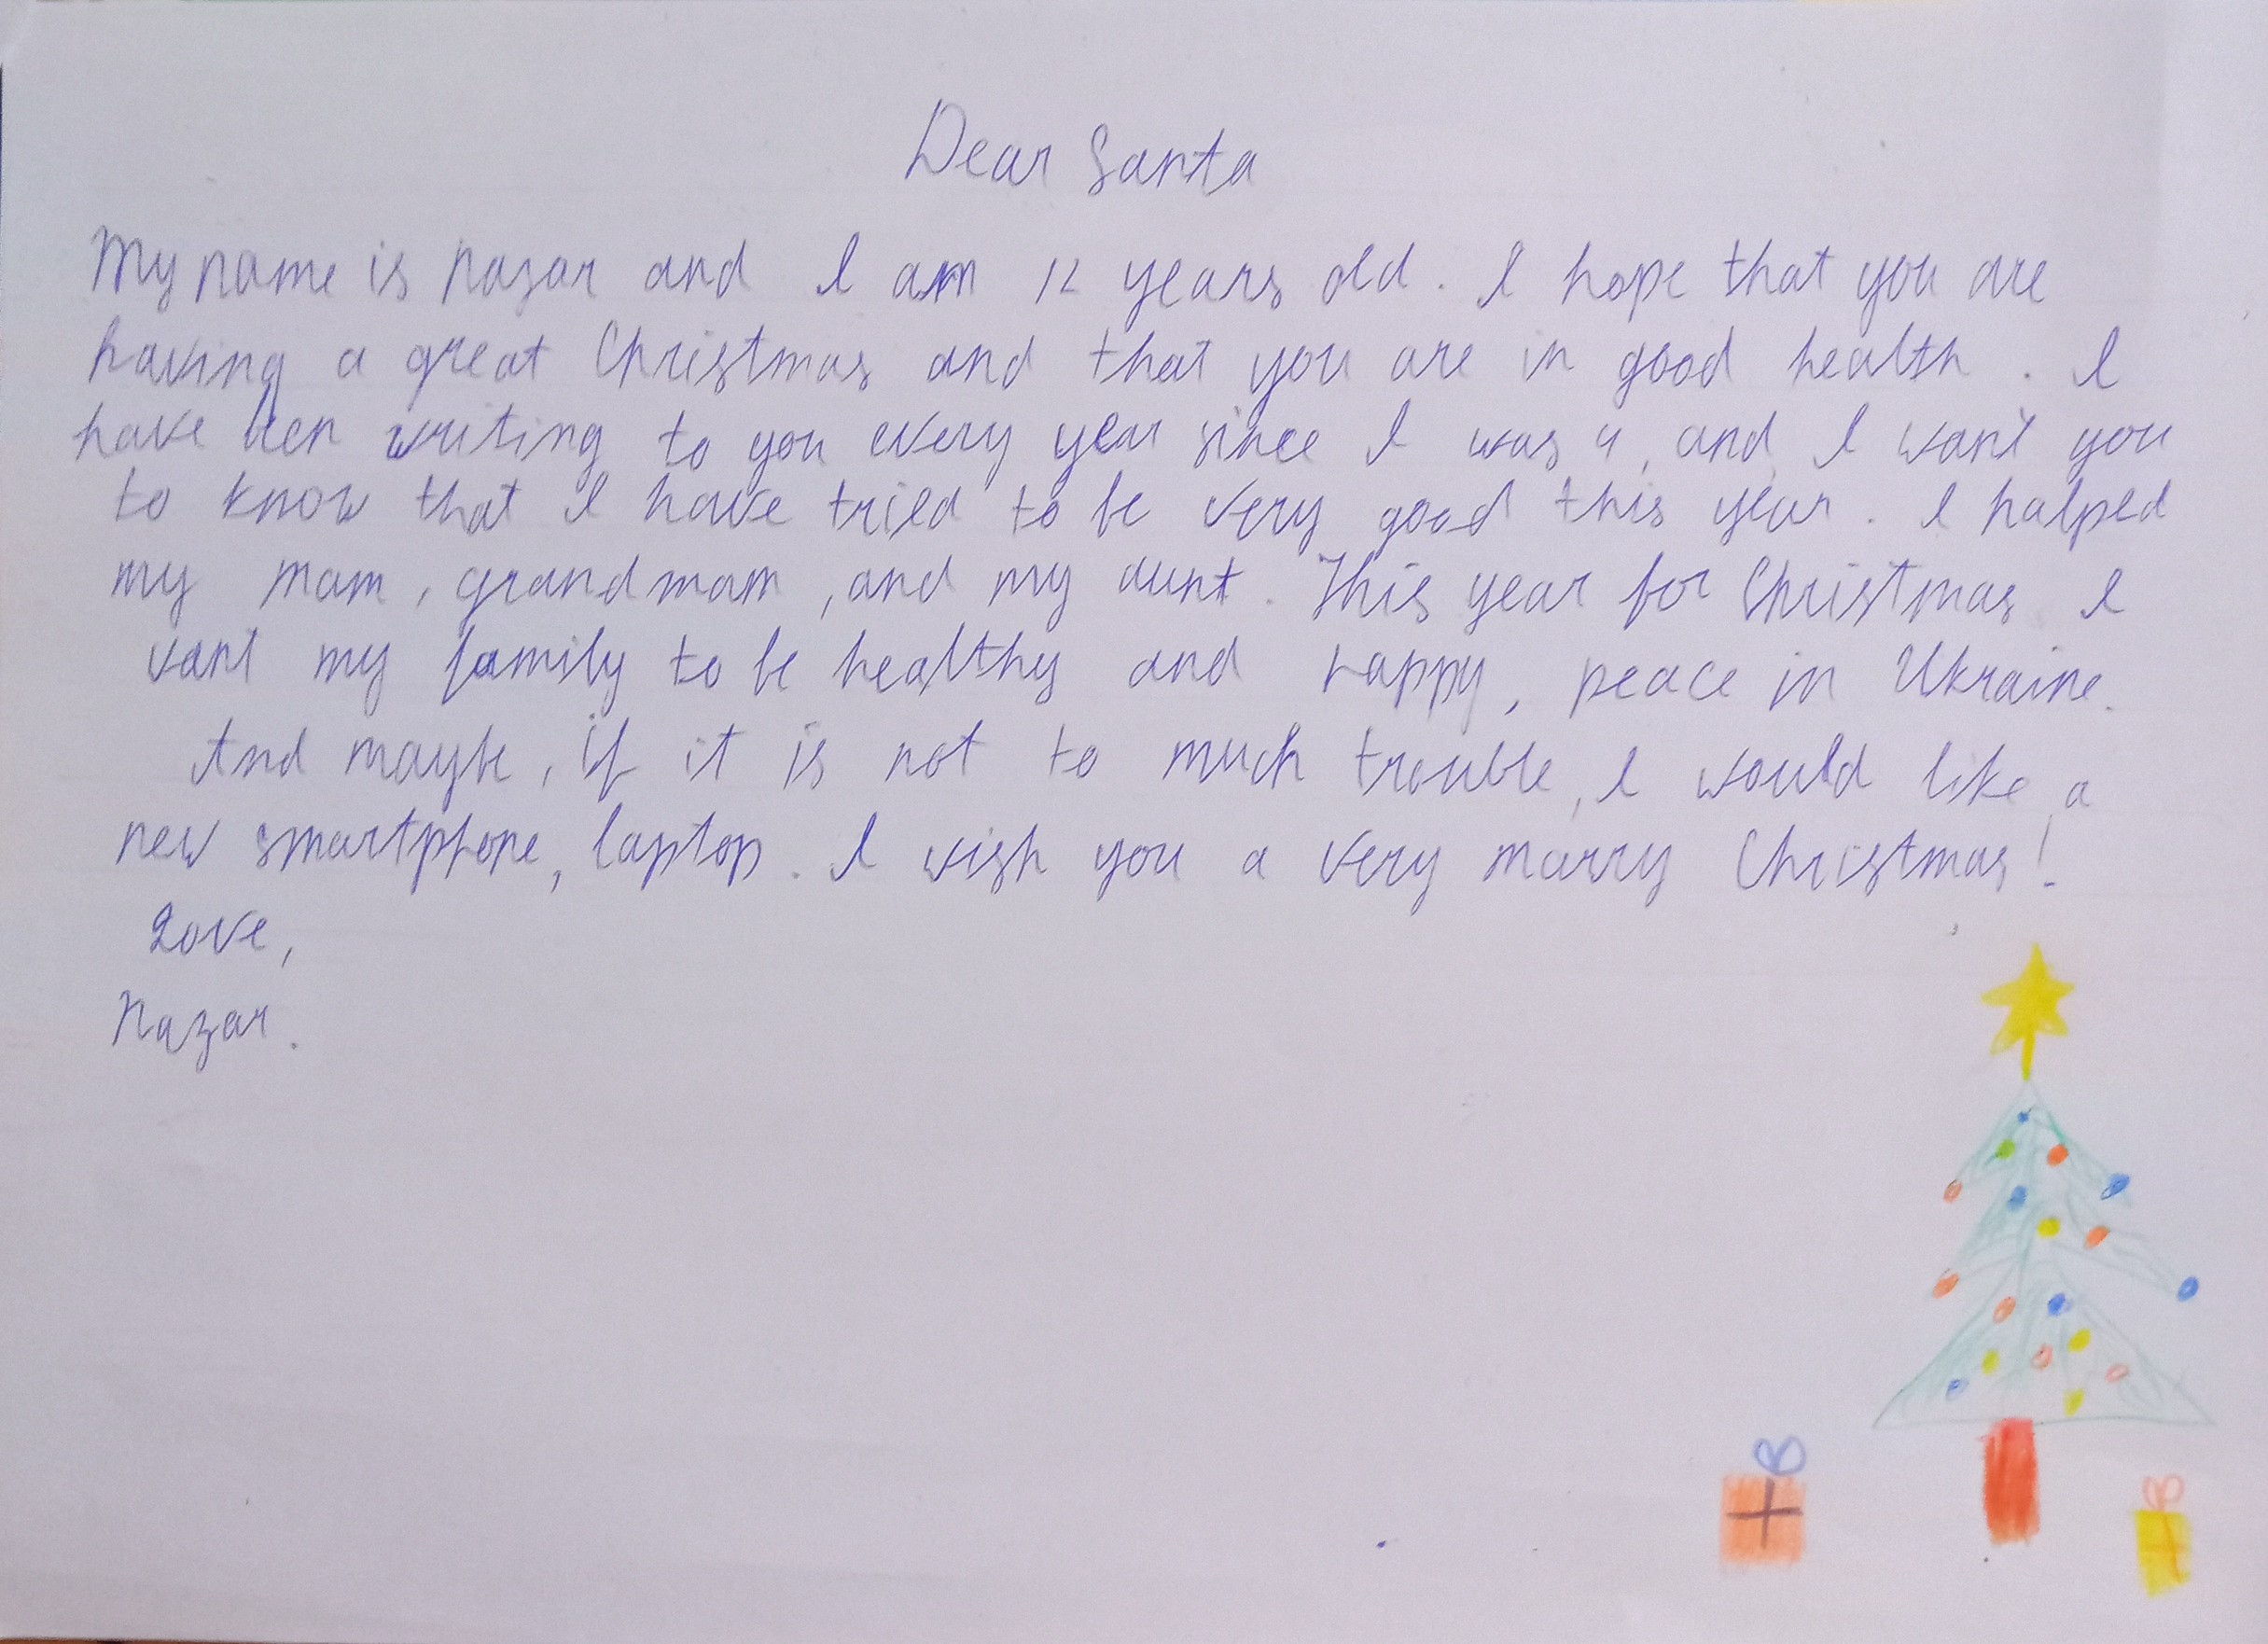 Dear Santa
My name is Nazar and I am 12 years old. I hope that you are
having a great Christmas and that you are in good health. I
have ben writing to you every year since I was 4, and I want you
to know that I have tried to be very good this year. I halped
my mam, grandmam, and my aunt. This year for Christmas I
want my family to be healthy and happy, peace in Ukraine.
And maybe, if it is not to much trouble, I would like a
new smartphone, laptop. I wish you a very marry Christmas!
Love,
Nazar.